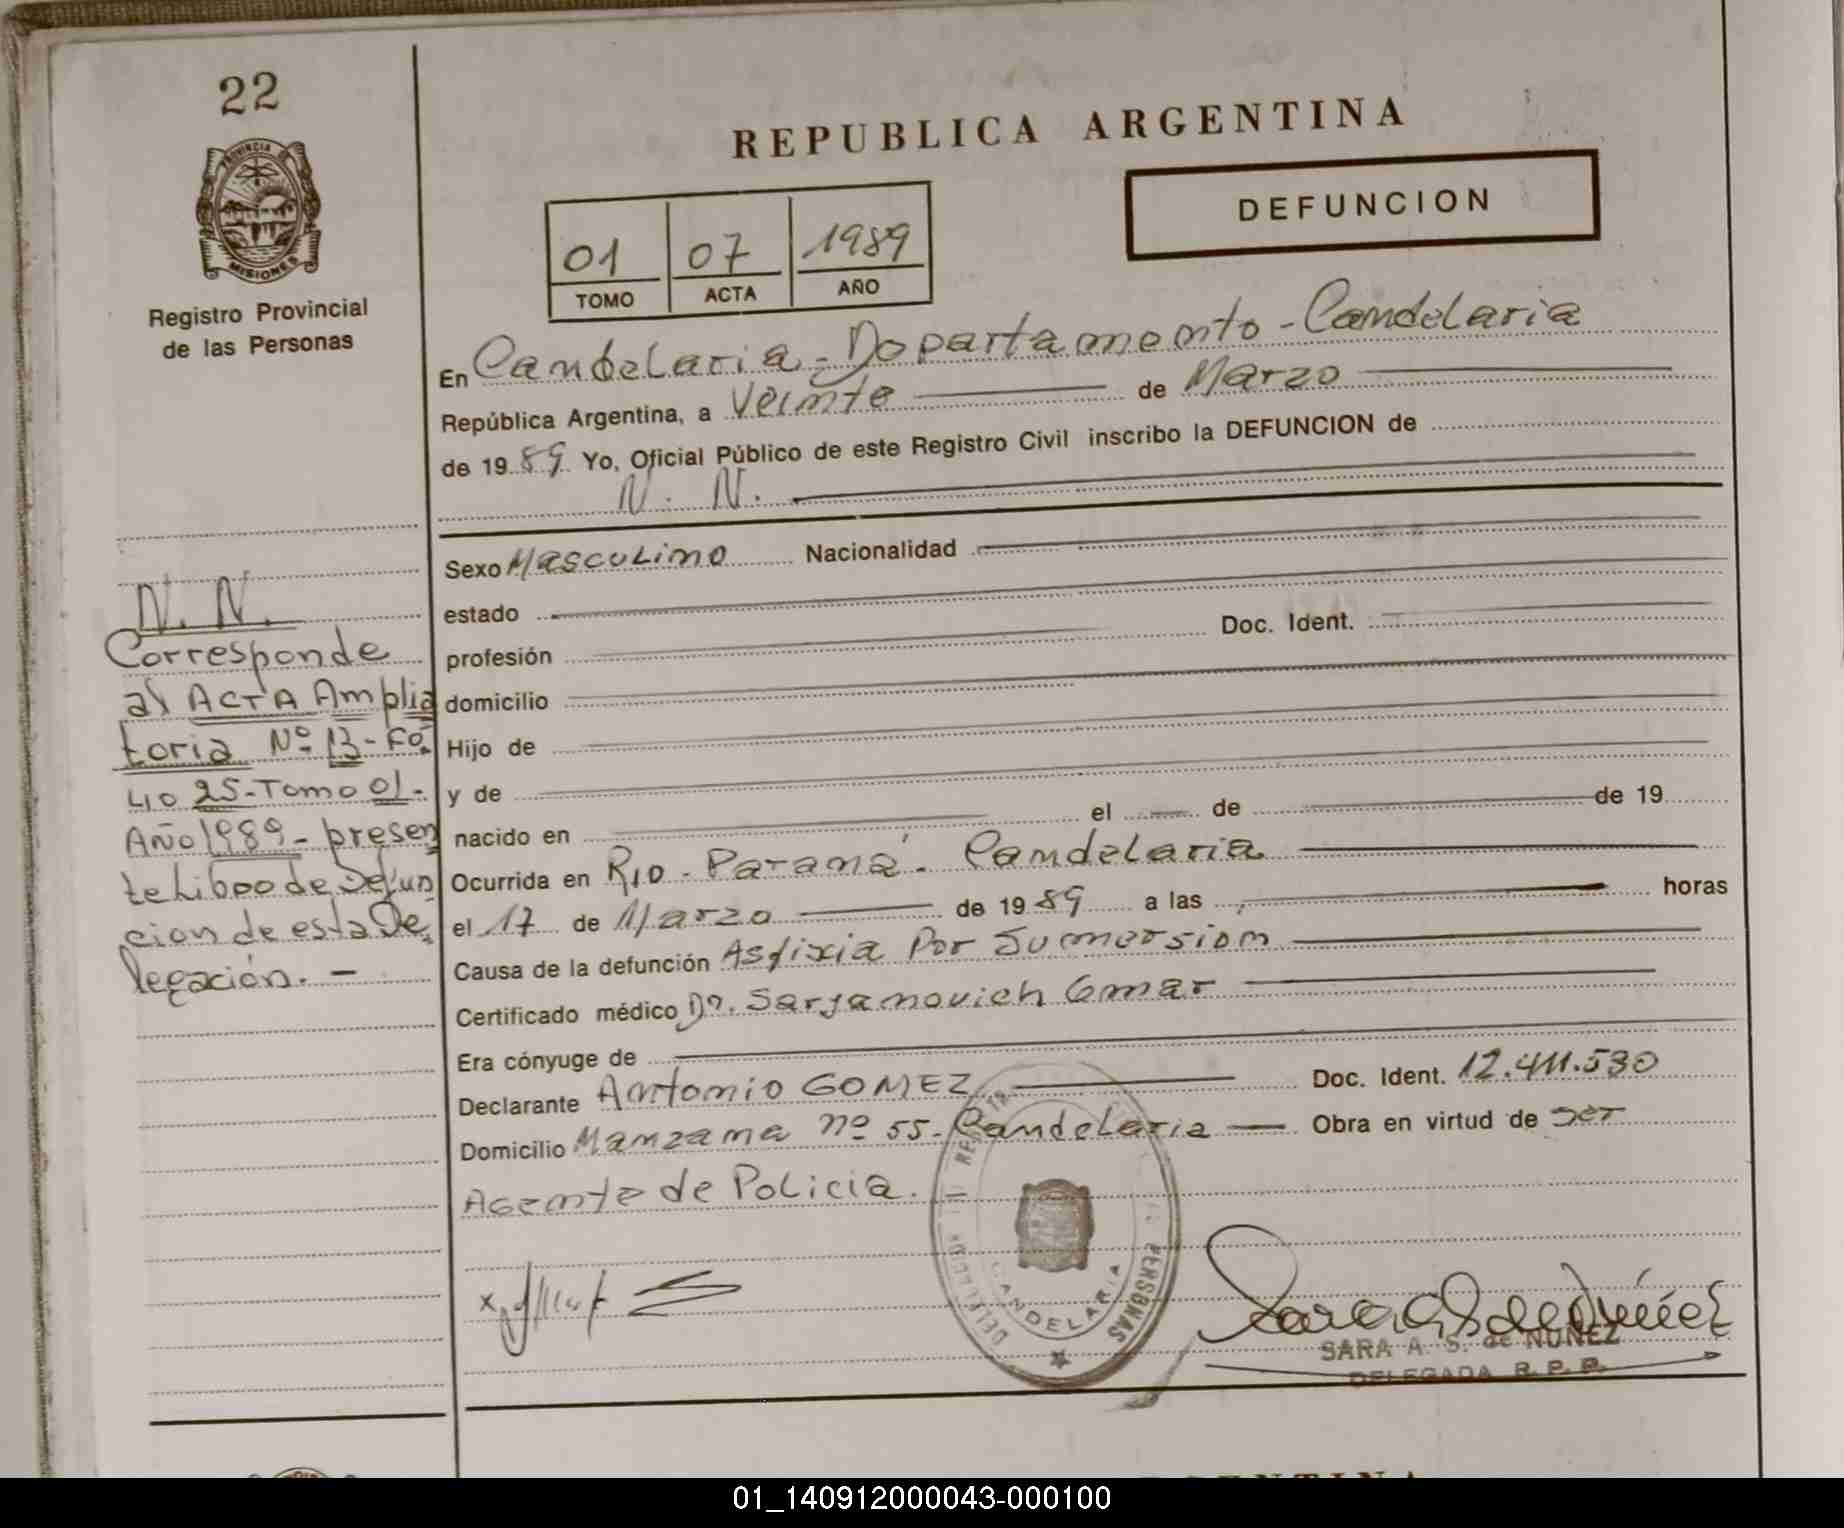 22
REPUBLICA ARGENTINA
PROVINCIA DE
MISIONES
Registro Provincial
de las Personas
DEFUNCION
01 07 1989
TOMO ACTA AÑO
En Candelaria - Departamento - Candelaria
República Argentina, a Veinte de Marzo
de 19 89 Yo, Oficial Público de este Registro Civil inscribo la DEFUNCION de
N. N.
Sexo Masculino Nacionalidad
estado
profesión Doc. Ident.
domicilio
Hijo de
y de
nacido en el de de 19
Ocurrida en Rio - Paraná - Candelaria
el 17 de Marzo de 19 89 a las horas
Causa de la defunción Asfixia Por Sumersion
Certificado médico Dr. Sarjanovich Omar
Era cónyuge de
Declarante Antonio GOMEZ Doc. Ident. 12.411.530
Domicilio Manzana nº 55 - Candelaria Obra en virtud de ser
Agente de Policia.
N. N.
Corresponde
al ACTA Amplia
toria Nº 13 - Fo
lio 25 - Tomo 01 -
Año 1989 - presen
te Libro de Defun
cion de esta De
legación. -
CANDELARIA
PERSONAS
SARA A. S. de NUÑEZ
DELEGADA R. P. P.
01_140912000043-000100